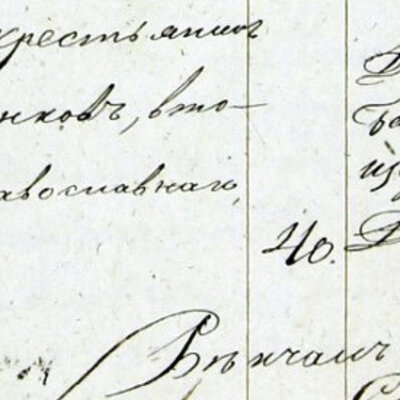 крестьянинъ
нковъ, вто-
авославнаго,
40.
Вѣнчалъ